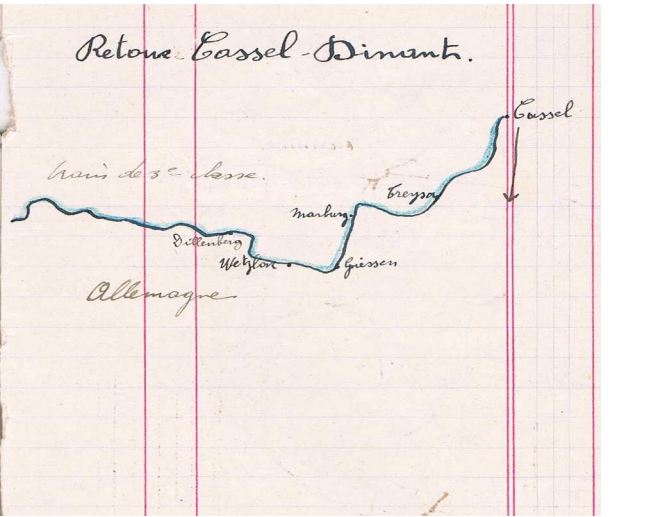 Retour Cassel-Dinant.
Cassel
train de 3e classe.
Treysa
Marburg
Dillenberg
Wetzlar
Giessen
Allemagne